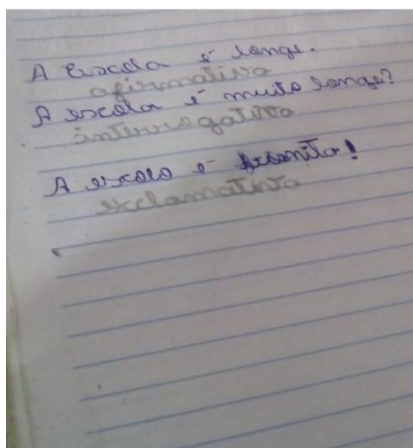 A Escola é longe.
afirmativa
A escola é muito longe?
interrogativa
A escola é bonita!
exclamativa